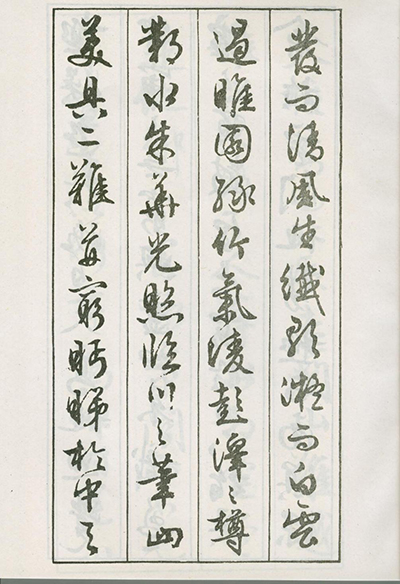 發而清風生纖歌凝而白雲
遏睢園綠竹氣淩彭澤之樽
鄴水朱華光照臨川之筆四
美具二難并窮眄睇於中天